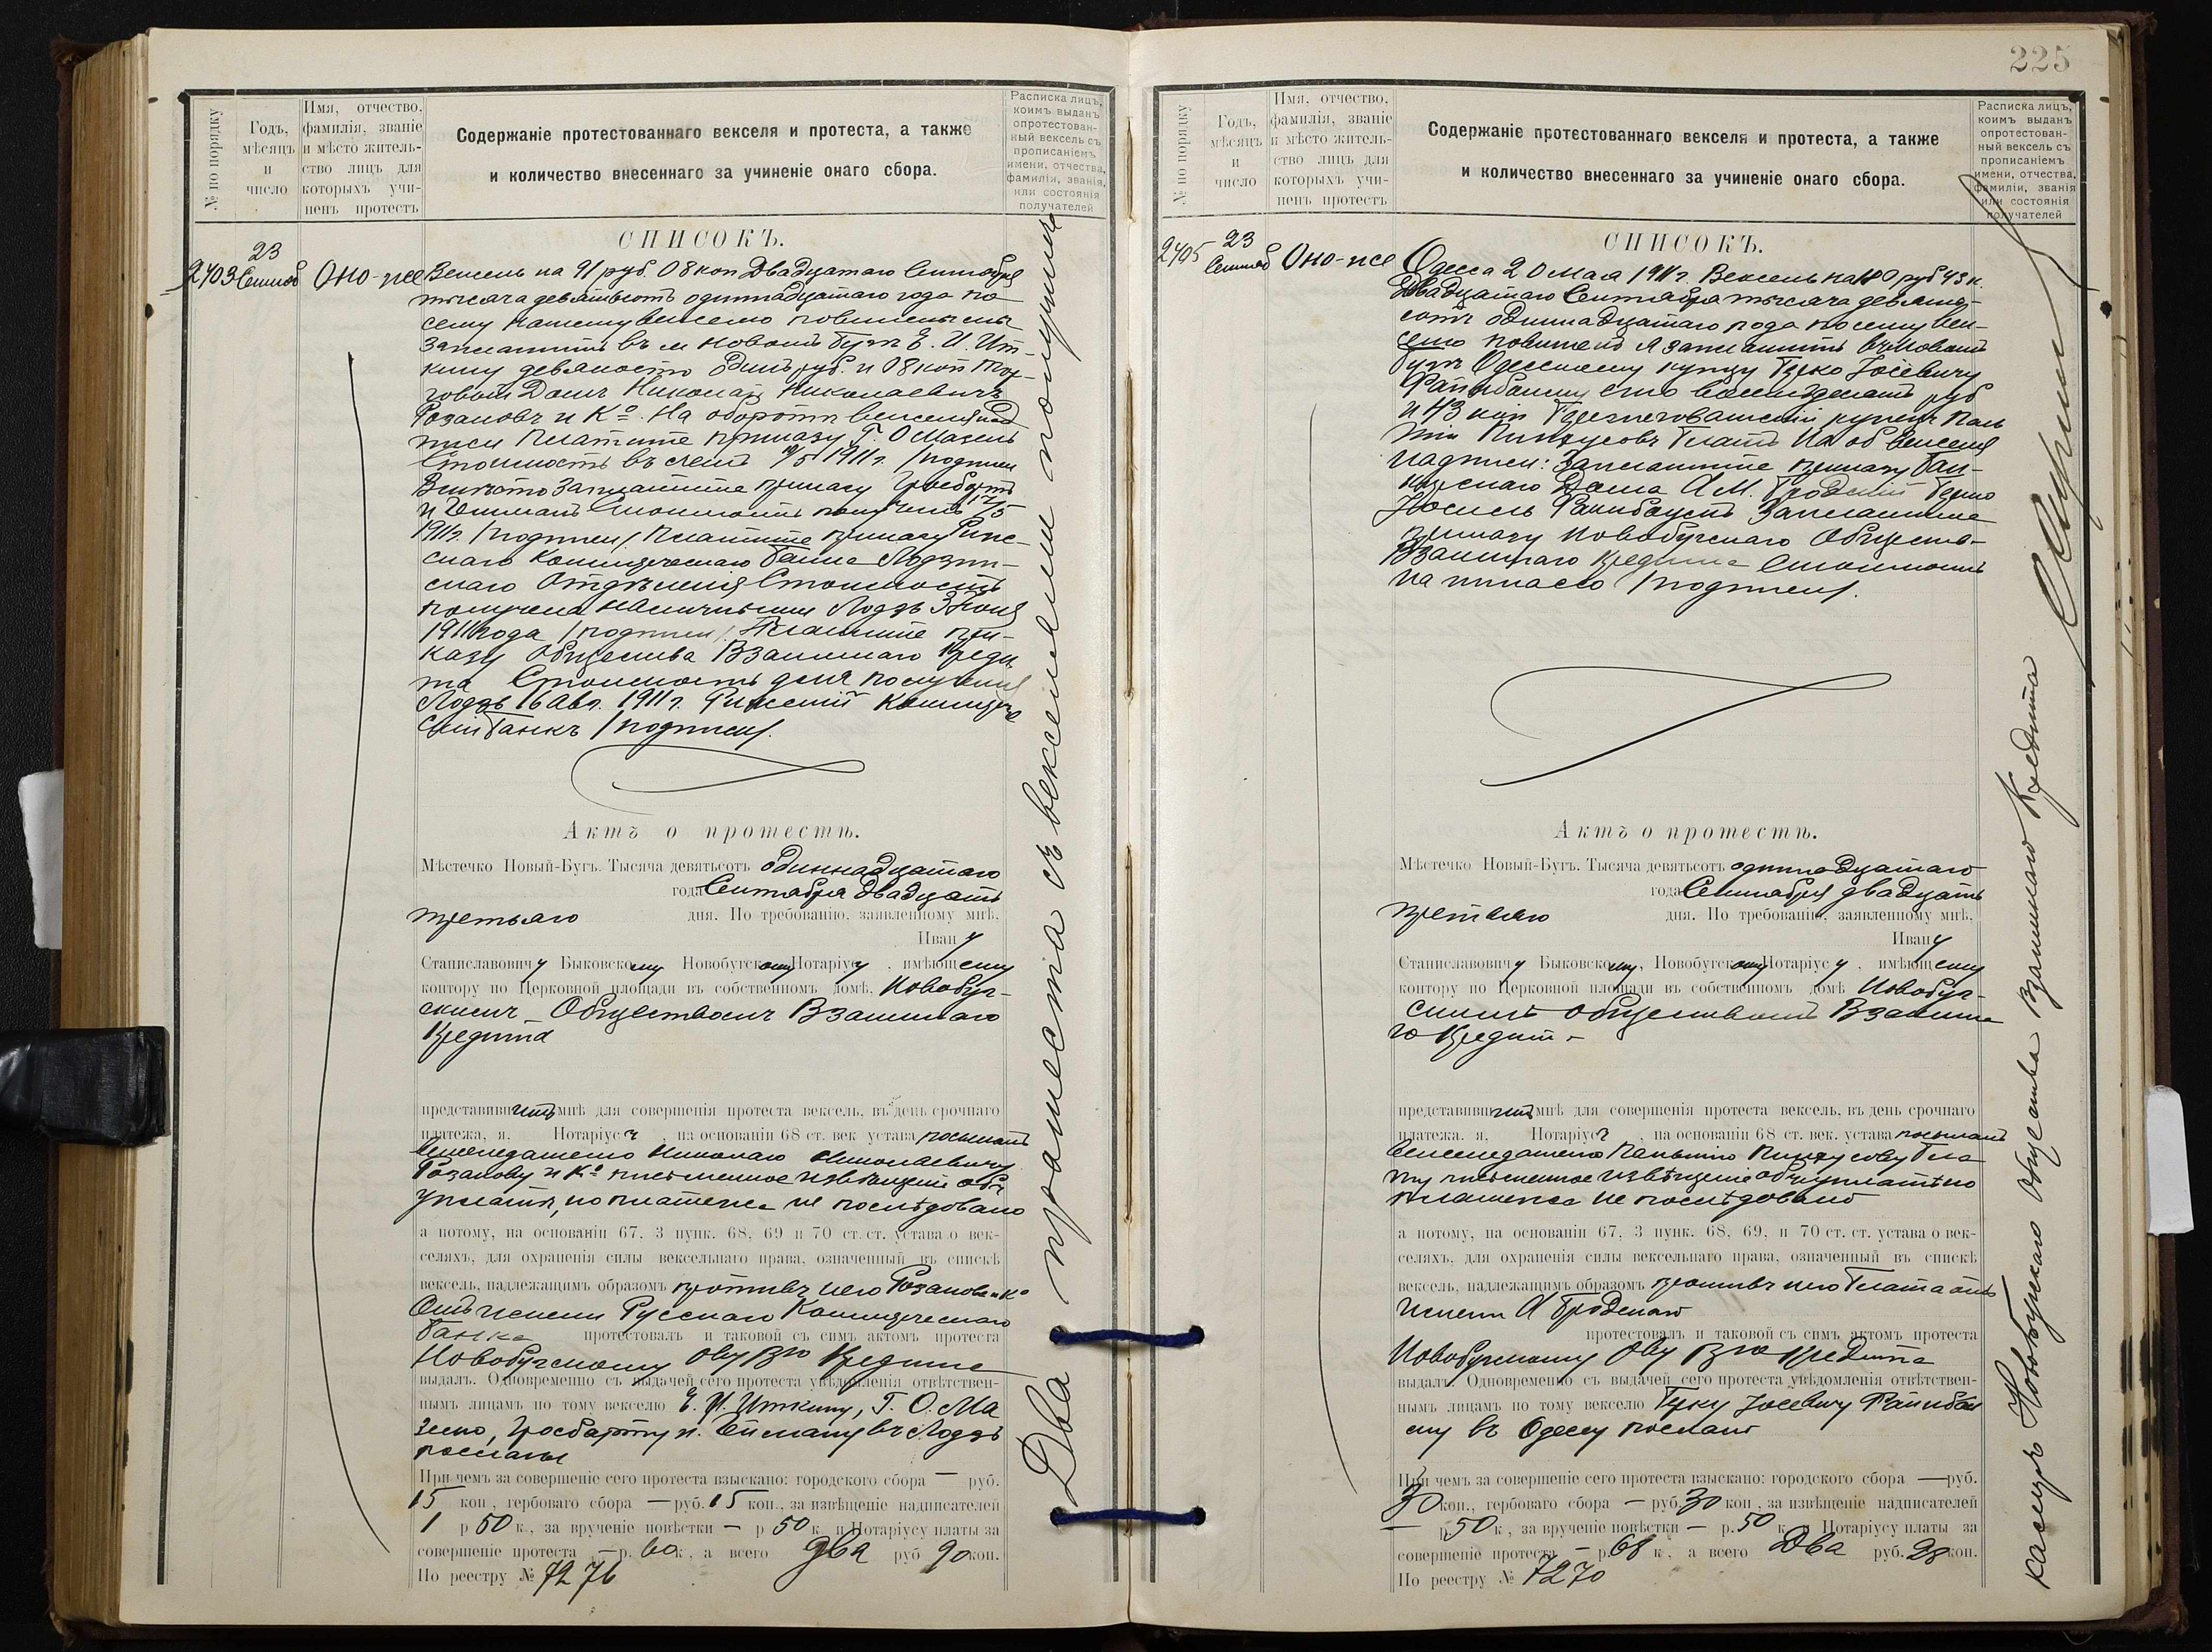 № по порядку
Годъ,
мѣсяцъ
и
число
Имя, отчество,
фамилія, званіе
и мѣсто житель-
ство лицъ для
которыхъ учи-
ненъ протестъ
Содержаніе протестованнаго векселя и протеста, а также
и количество внесеннаго за учиненіе онаго сбора.
Расписка лицъ,
коимъ выданъ
опротестован-
ный вексель съ
прописаніемъ
имени, отчества,
фамиліи, званія,
или состоянія
получателей
СПИСОКЪ.
2403
23
Сентяб
Оно-же
Вексель на 91 руб. 08 коп Двадцатаго Сентября
тысяча девятьсотъ одиннадцатаго года по
сему нашему векселю повинны мы
заплатить въ м Новомъ Бугѣ Е. И. Ит-
кину девяносто одинъ руб. и 08 коп Тор-
говый Домъ Николай Николаевичъ
Розановъ и Кº. На оборотѣ векселя над
писи Платите приказу Г. О Мазель
Стоимость въ счетъ 1911 г. /подписи
Вмѣсто заплатите приказу Гросбартъ
и Стоимость получилъ 17/5
1911 г. /подписи/ Платите приказу Рижс-
скаго Коммерческаго Банка Лодзин-
скаго Отдѣленія Стоимость
получена наличными Лодзь 3 Юня
1911 года /подписи/. Платите при-
казу Общества Взаимнаго Креди
та Стоимость для полученія
Лодзь 16 Авг. 1911 г. Рижскій Коммерче
скій Банкъ /подписи/.
Актъ о протестѣ.
Мѣстечко Новый-Бугъ. Тысяча девятьсотъ одиннадцатаго
года Сентября двадцать
третьяго дня. По требованію, заявленному мнѣ,
Ивану
Станиславовичу Быковскому Новобугскому Нотаріусу, имѣющему
контору по Церковной площади въ собственномъ домѣ, Новобуг-
скимъ Обществомъ Взаимнаго
Кредита
представившимъ мнѣ для совершенія протеста вексель, въ день срочнаго
платежа, я. Нотаріусъ, на основаніи 68 ст. век устава послалъ
векселедателю Николаю Николаевичу
Розанову и Кº письменное извѣщеніе объ
уплатѣ, но платежа не послѣдовало
а потому, на основаніи 67, 3 пунк. 68, 69 и 70 ст. ст. устава о век-
селяхъ, для охраненія силы вексельнаго права, означенный въ спискѣ
вексель, надлежащимъ образомъ противъ него Розанова и Кº
Отъ имени Русскаго Коммерческаго
Банка протестовалъ и таковой съ симъ актомъ протеста
Новобугскому Ову Вго Кредита
выдалъ. Одновременно съ выдачей сего протеста увѣдомленія отвѣтствен-
нымъ лицамъ по тому векселю Е. И. Иткину, Г. О. Ма
зелю, Гросбарту и въ Лодзь
посланы
При чемъ за совершеніе сего протеста взыскано: городского сбора — руб.
15 коп, гербоваго сбора — руб. 15 коп., за извѣщеніе надписателей
1 р 50 к., за врученіе повѣстки — р 50 к. и Нотаріусу платы за
совершеніе протеста — р. 60 к, а всего два руб 90 коп.
По реестру № 7276
Два протеста съ векселями получилъ
225
№ по порядку
Годъ,
мѣсяцъ
и
число
Имя, отчество,
фамилія, званіе
и мѣсто житель-
ство лицъ для
которыхъ учи-
ненъ протестъ
Содержаніе протестованнаго векселя и протеста, а также
и количество внесеннаго за учиненіе онаго сбора.
Расписка лицъ,
коимъ выданъ
опротестован-
ный вексель съ
прописаніемъ
имени, отчества,
фамиліи, званія
или состоянія
получателей
СПИСОКЪ.
2405
23
Сентяб
Оно-же
Одесса 20 Мая 1911 г. Вексель на руб 43 к.
Двадцатаго Сентября тысяча девять-
сотъ одиннадцатаго года по сему век-
селю повиненъ я заплатить въ м Новомъ
Бугѣ Одесскому купцу Іосевичу
сто восемьдесятъ руб
и 43 коп купецъ
На об векселя
надписи: Заплатите приказу Бан-
кирскаго Дома А М. Бродскій
Заплатите
приказу Новобугскаго Общества
Взаимнаго Кредита Стоимость
на инкассо /подписи/.
Актъ о протестѣ.
Мѣстечко Новый-Бугъ. Тысяча девятьсотъ одиннадцатаго
года Сентября двадцать
третьяго дня. По требованію, заявленному мнѣ,
Ивану
Станиславовичу Быковскому, Новобугскому Нотаріусу, имѣющему
контору по Церковной площади въ собственномъ домѣ Новобуг-
скимъ Обществомъ Взаимна
го Кредит-
представившимъ мнѣ для совершенія протеста вексель, въ день срочнаго
платежа. я, Нотаріусъ, на основаніи 68 ст. век. устава послалъ
векселедателю
письменное извѣщеніе объ уплатѣ но
платежа не послѣдовало
а потому, на основаніи 67, 3 пунк. 68, 69, и 70 ст. ст. устава о век-
селяхъ, для охраненія силы вексельнаго права, означенный въ спискѣ
вексель, надлежащимъ образомъ противъ него отъ
имени А Бродскаго
протестовалъ и таковой съ симъ актомъ протеста
Новобугскому Ову Вго Кредита
выдалъ. Одновременно съ выдачей сего протеста увѣдомленія отвѣтствен-
нымъ лицамъ по тому векселю
въ Одессу послано
При чемъ за совершеніе сего протеста взыскано: городского сбора — руб.
30 коп., гербоваго сбора — руб 30 коп, за извѣщеніе надписателей
— р 50 к, за врученіе повѣстки — р. 50 к. и Нотаріусу платы за
совершеніе протеста — р 68 к, а всего Два руб. 28 коп.
По реестру № 7270
касиръ Новобугскаго Общества Взаимнаго Кредита